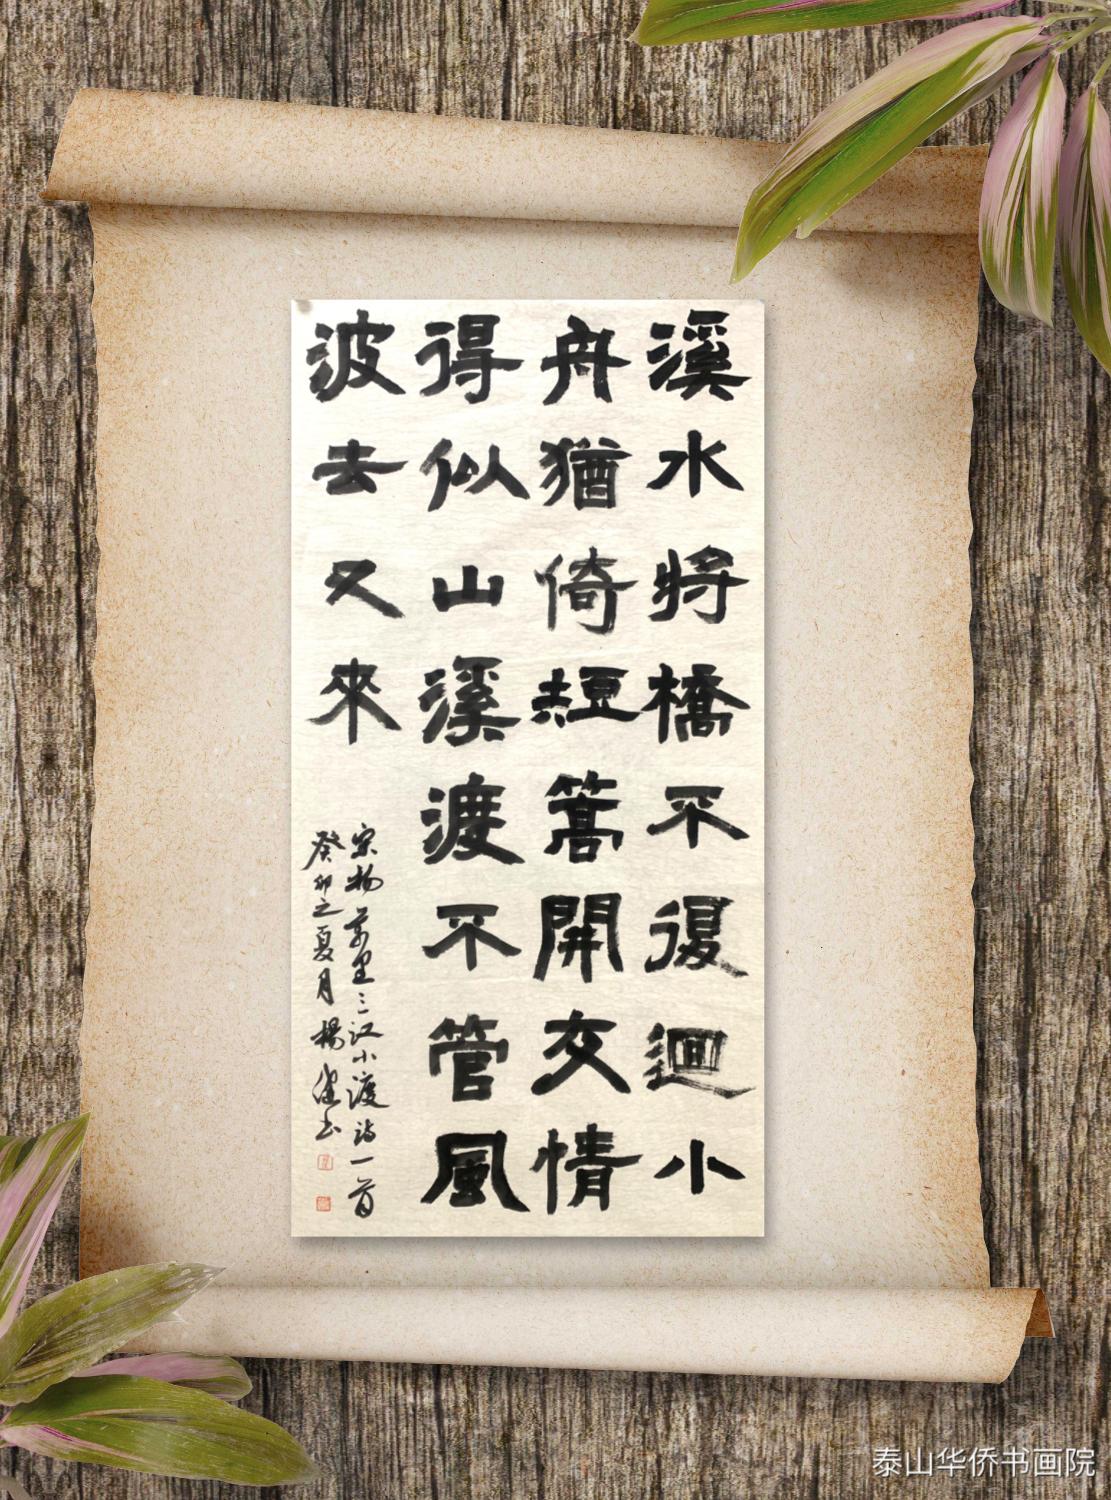 溪水將橋不復迴小
舟猶倚短篙開交情
得似山溪渡不管風
波去又來
宋杨萬里三江小渡诗一首
癸卯之夏月楊健书
泰山华侨书画院